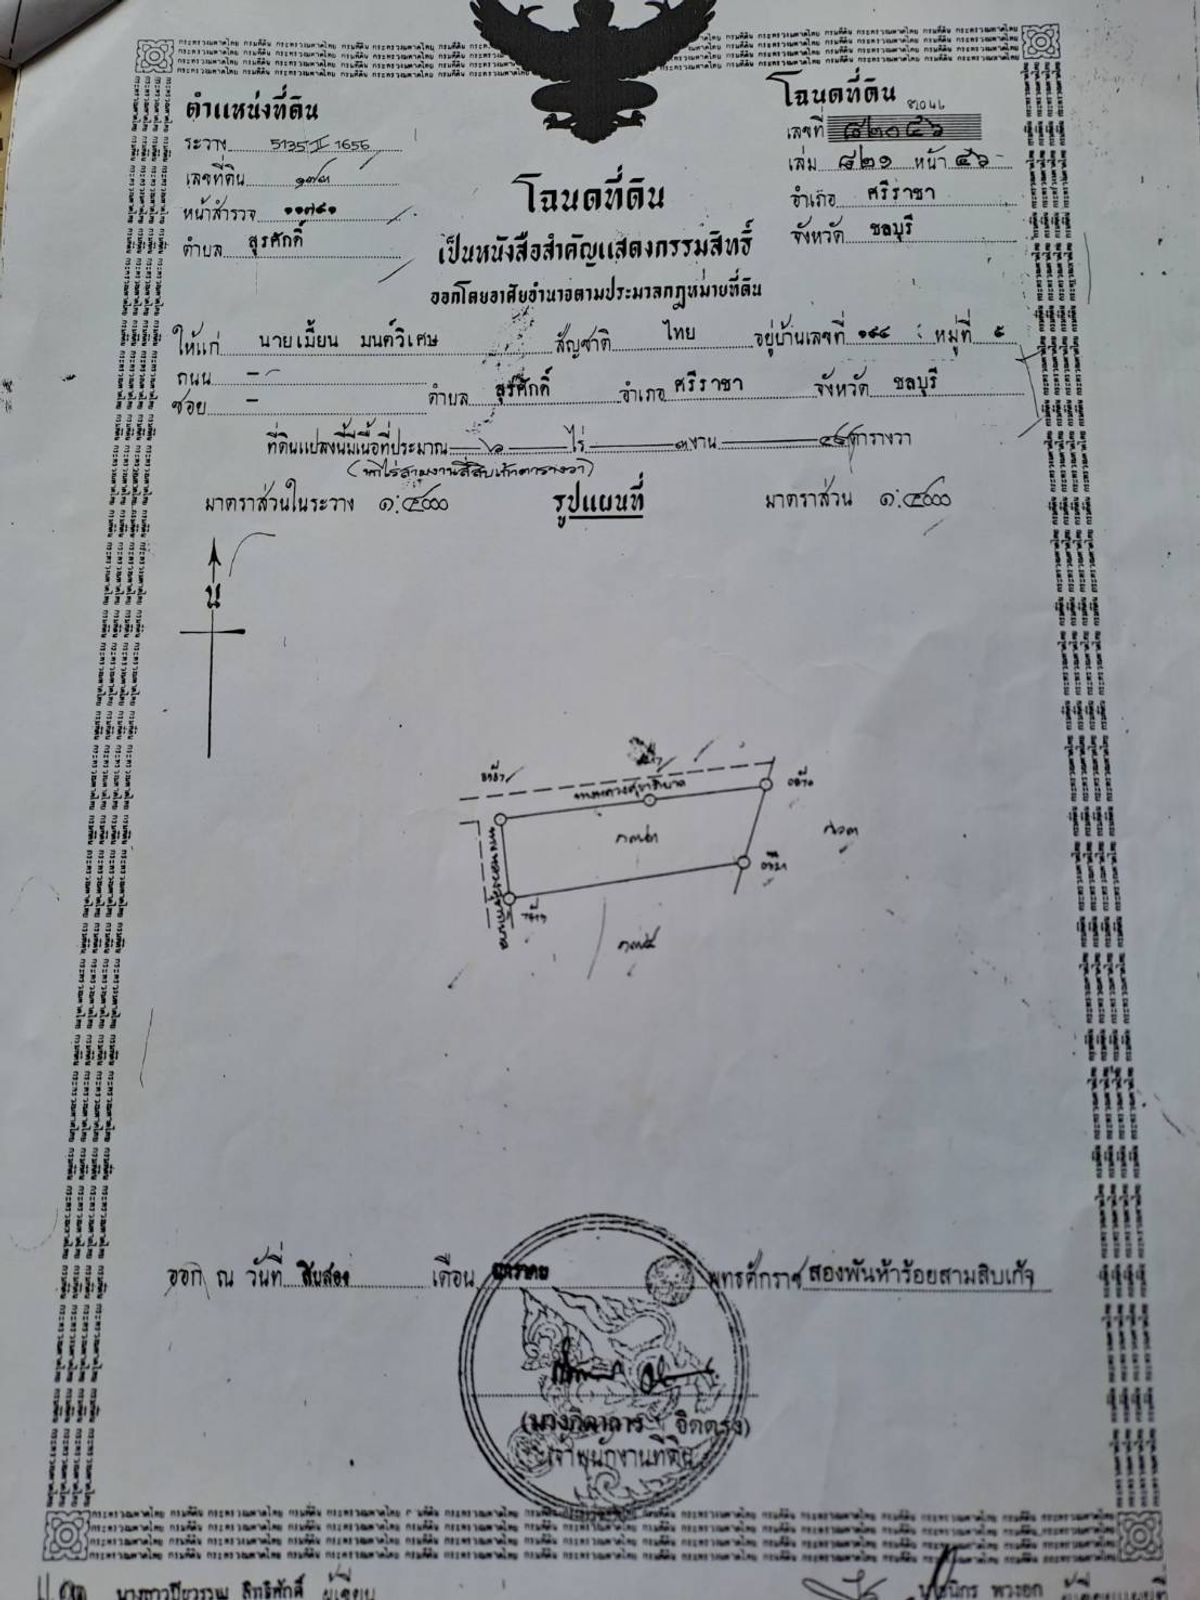 ตำแหน่งที่ดิน
ระวาง 5135 II 1656
เลขที่ดิน ๑๗๓
หน้าสำรวจ ๑๑๗๔๑
ตำบล สุรศักดิ์
โฉนดที่ดิน
เลขที่ ๘๒๐๔๖
เล่ม ๘๒๑ หน้า ๔๖
อำเภอ ศรีราชา
จังหวัด ชลบุรี
โฉนดที่ดิน
เป็นหนังสือสำคัญแสดงกรรมสิทธิ์
ออกโดยอาศัยอำนาจตามประมวลกฎหมายที่ดิน
ให้แก่ นายเมี้ยน มนต์วิเศษ สัญชาติ ไทย อยู่บ้านเลขที่ ๑๔๔ หมู่ที่ ๕
ถนน –
ซอย – ตำบล สุรศักดิ์ อำเภอ ศรีราชา จังหวัด ชลบุรี
ที่ดินแปลงนี้มีเนื้อที่ประมาณ ๖ ไร่ ๓ งาน ๔๙ ตารางวา
(หกไร่สามงานสี่สิบเก้าตารางวา)
มาตราส่วนในระวาง ๑:๔๐๐๐ รูปแผนที่ มาตราส่วน ๑:๔๐๐๐
น
ทางหลวงสุขาภิบาล
ทางหลวงสุขาภิบาล
ออก ณ วันที่ สิบสอง เดือน พุทธศักราช สองพันห้าร้อยสามสิบเก้า
เจ้าพนักงานที่ดิน
นางสาวปิยวรรณ สิทธิศักดิ์ ผู้เขียน